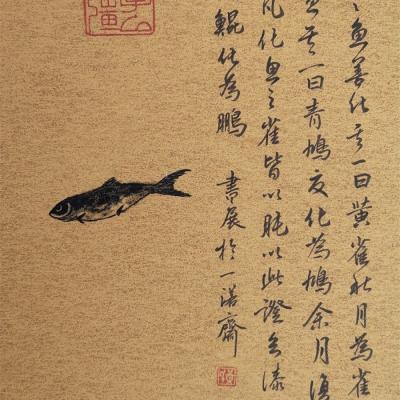 魚善化其一曰黃雀秋月為雀
其一曰青鳩化為鳩余月復
凡化魚之雀皆以肫以此證漆
鯤化為鵬 書展於一諾齋